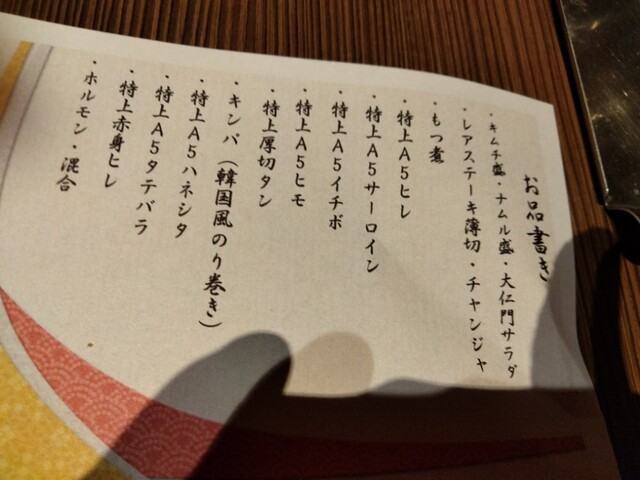 お品書き
・キムチ盛・ナムル盛・大仁門サラダ
・レアステーキ薄切・チャンジャ
・もつ煮
・特上A5ヒレ
・特上A5サーロイン
・特上A5イチボ
・特上A5ヒモ
・特上厚切タン
・キンパ(韓国風のり巻き)
・特上A5ハネシタ
・特上A5タテバラ
・特上赤身ヒレ
・ホルモン・混合